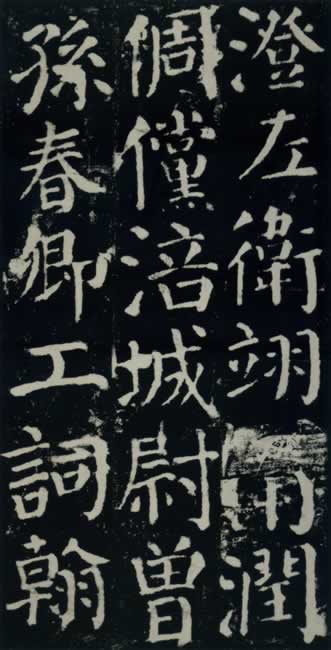 澄左衛翊潤
倜儻涪城尉曾
孫春卿工詞翰